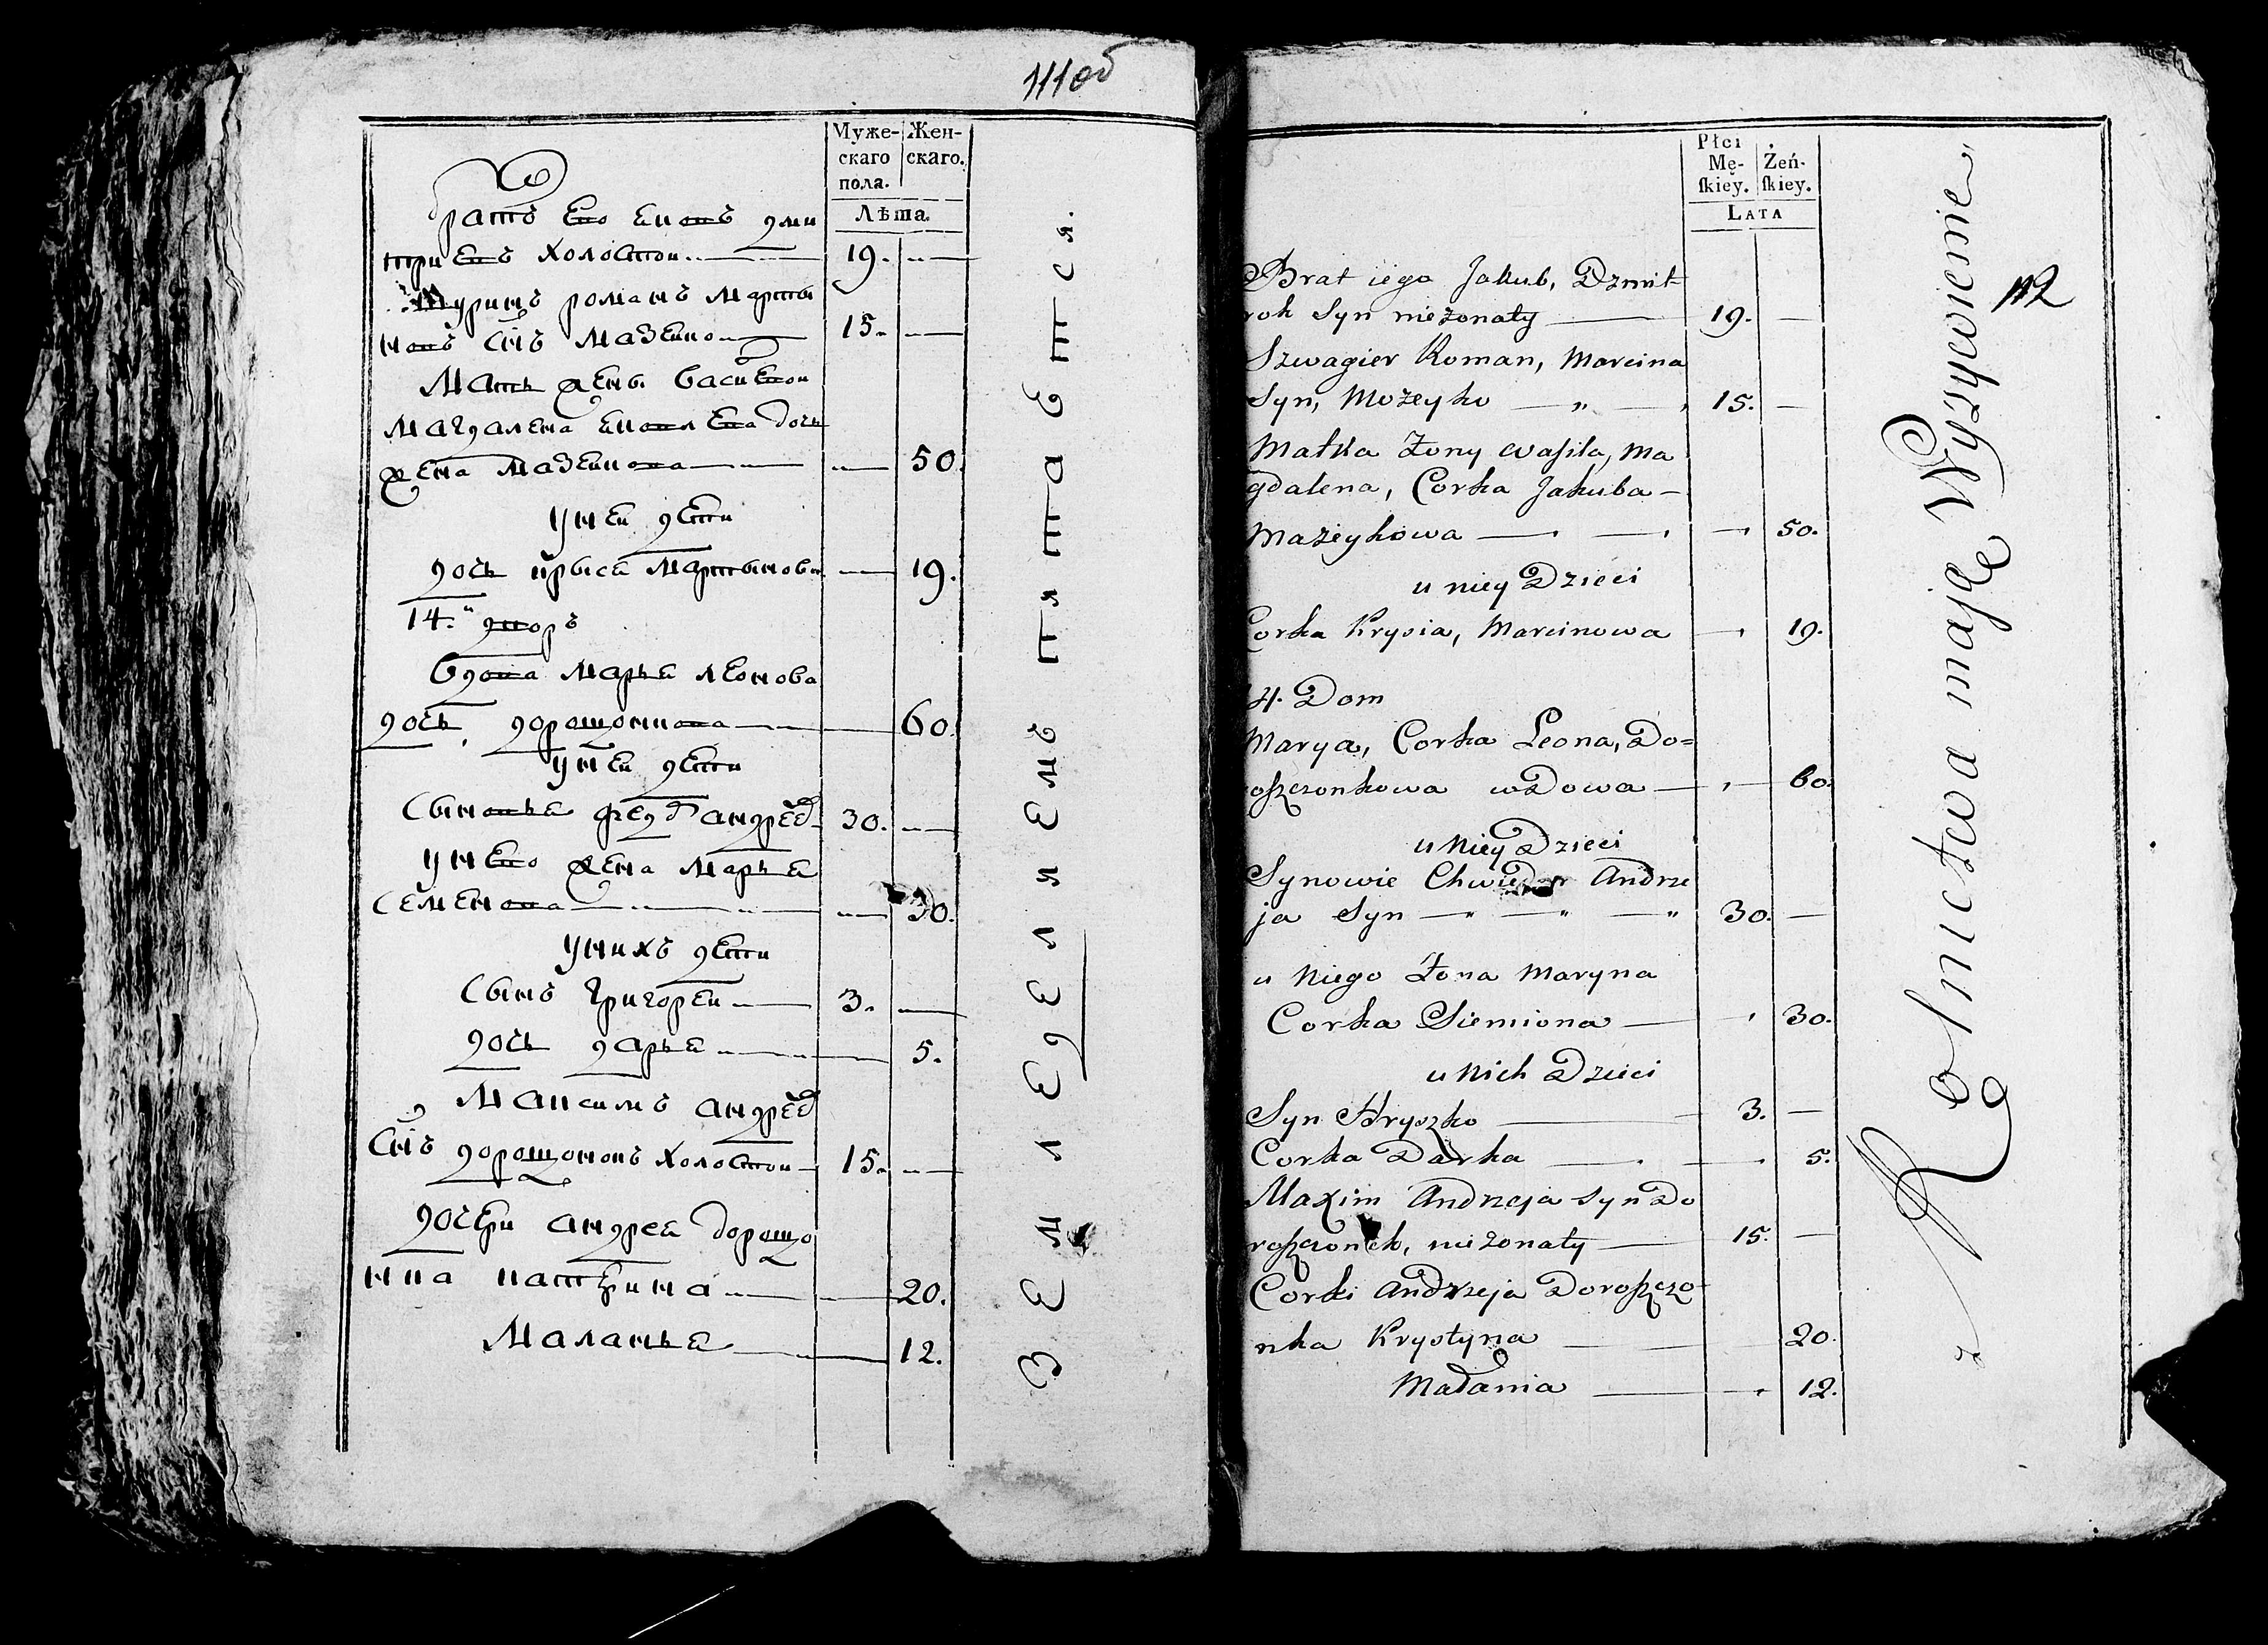 111 об
Муже- Жен-
скаго скаго.
пола.
Лѣта.
братъ Его Яковъ дми
триевъ холостои 19.
Шуринъ романъ марты
новъ снъ мазеико 15.
Мать жены васи
магдалена яковлева дочь
жена мазеикова 50.
У неи дети
дочь крыся мартынова 19.
14.й дворъ
вдова марья леонова
дочь дорошонкова 60.
У неи дети
Сыновья андрее 30.
У него жена марья
семенова 30.
У нихъ дети
Сынъ григореи 3.
дочь дарья 5.
Максимъ андрее
снъ дорошонокъ холостои 15.
дочери андрея дорошо
нка катерина 20.
Маланья 12.
Земледелием питается.
112
Płci
Mę- Żeń-
skiey. skiey.
LATA
Brat iego Jakub, Dzmit
rok Syn nieżonaty 19.
Szwagier Roman, Marcina
Syn, Możeyko 15.
Matka Żony Wasila, Ma
gdalena, Corka Jakuba
Mażeykowa 50.
u niey Dzieci
Corka Krysia, Marcinowa 19.
14. Dom
Marya, Corka Leona, Do=
roszczonkowa wdowa 60.
u Niey Dzieci
Synowie Chwiedor Andrze
ja Syn 30.
u Niego Żona Maryna
Corka Siemiona 30.
u Nich Dzieci
Syn Hryszko 3.
Corka Darka 5.
Maxim Andrzeja Syn Do
roszczonek, nieżonaty 15.
Corki Andrzeja Doroszczo-
nka Krystyna 20.
Małania 12.
z Rolnictwa maję Wyżywienie